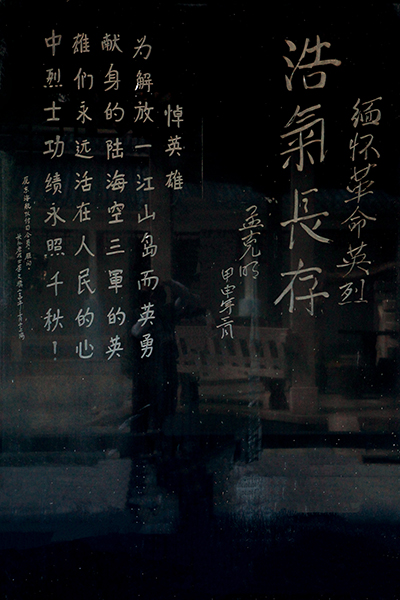 缅怀革命英烈
浩氣長存
孟克明
甲申年
悼英雄
为解放一江山岛而英勇
献身的陆海空三軍的英
雄们永远活在人民的心
中烈士功绩永照千秋！